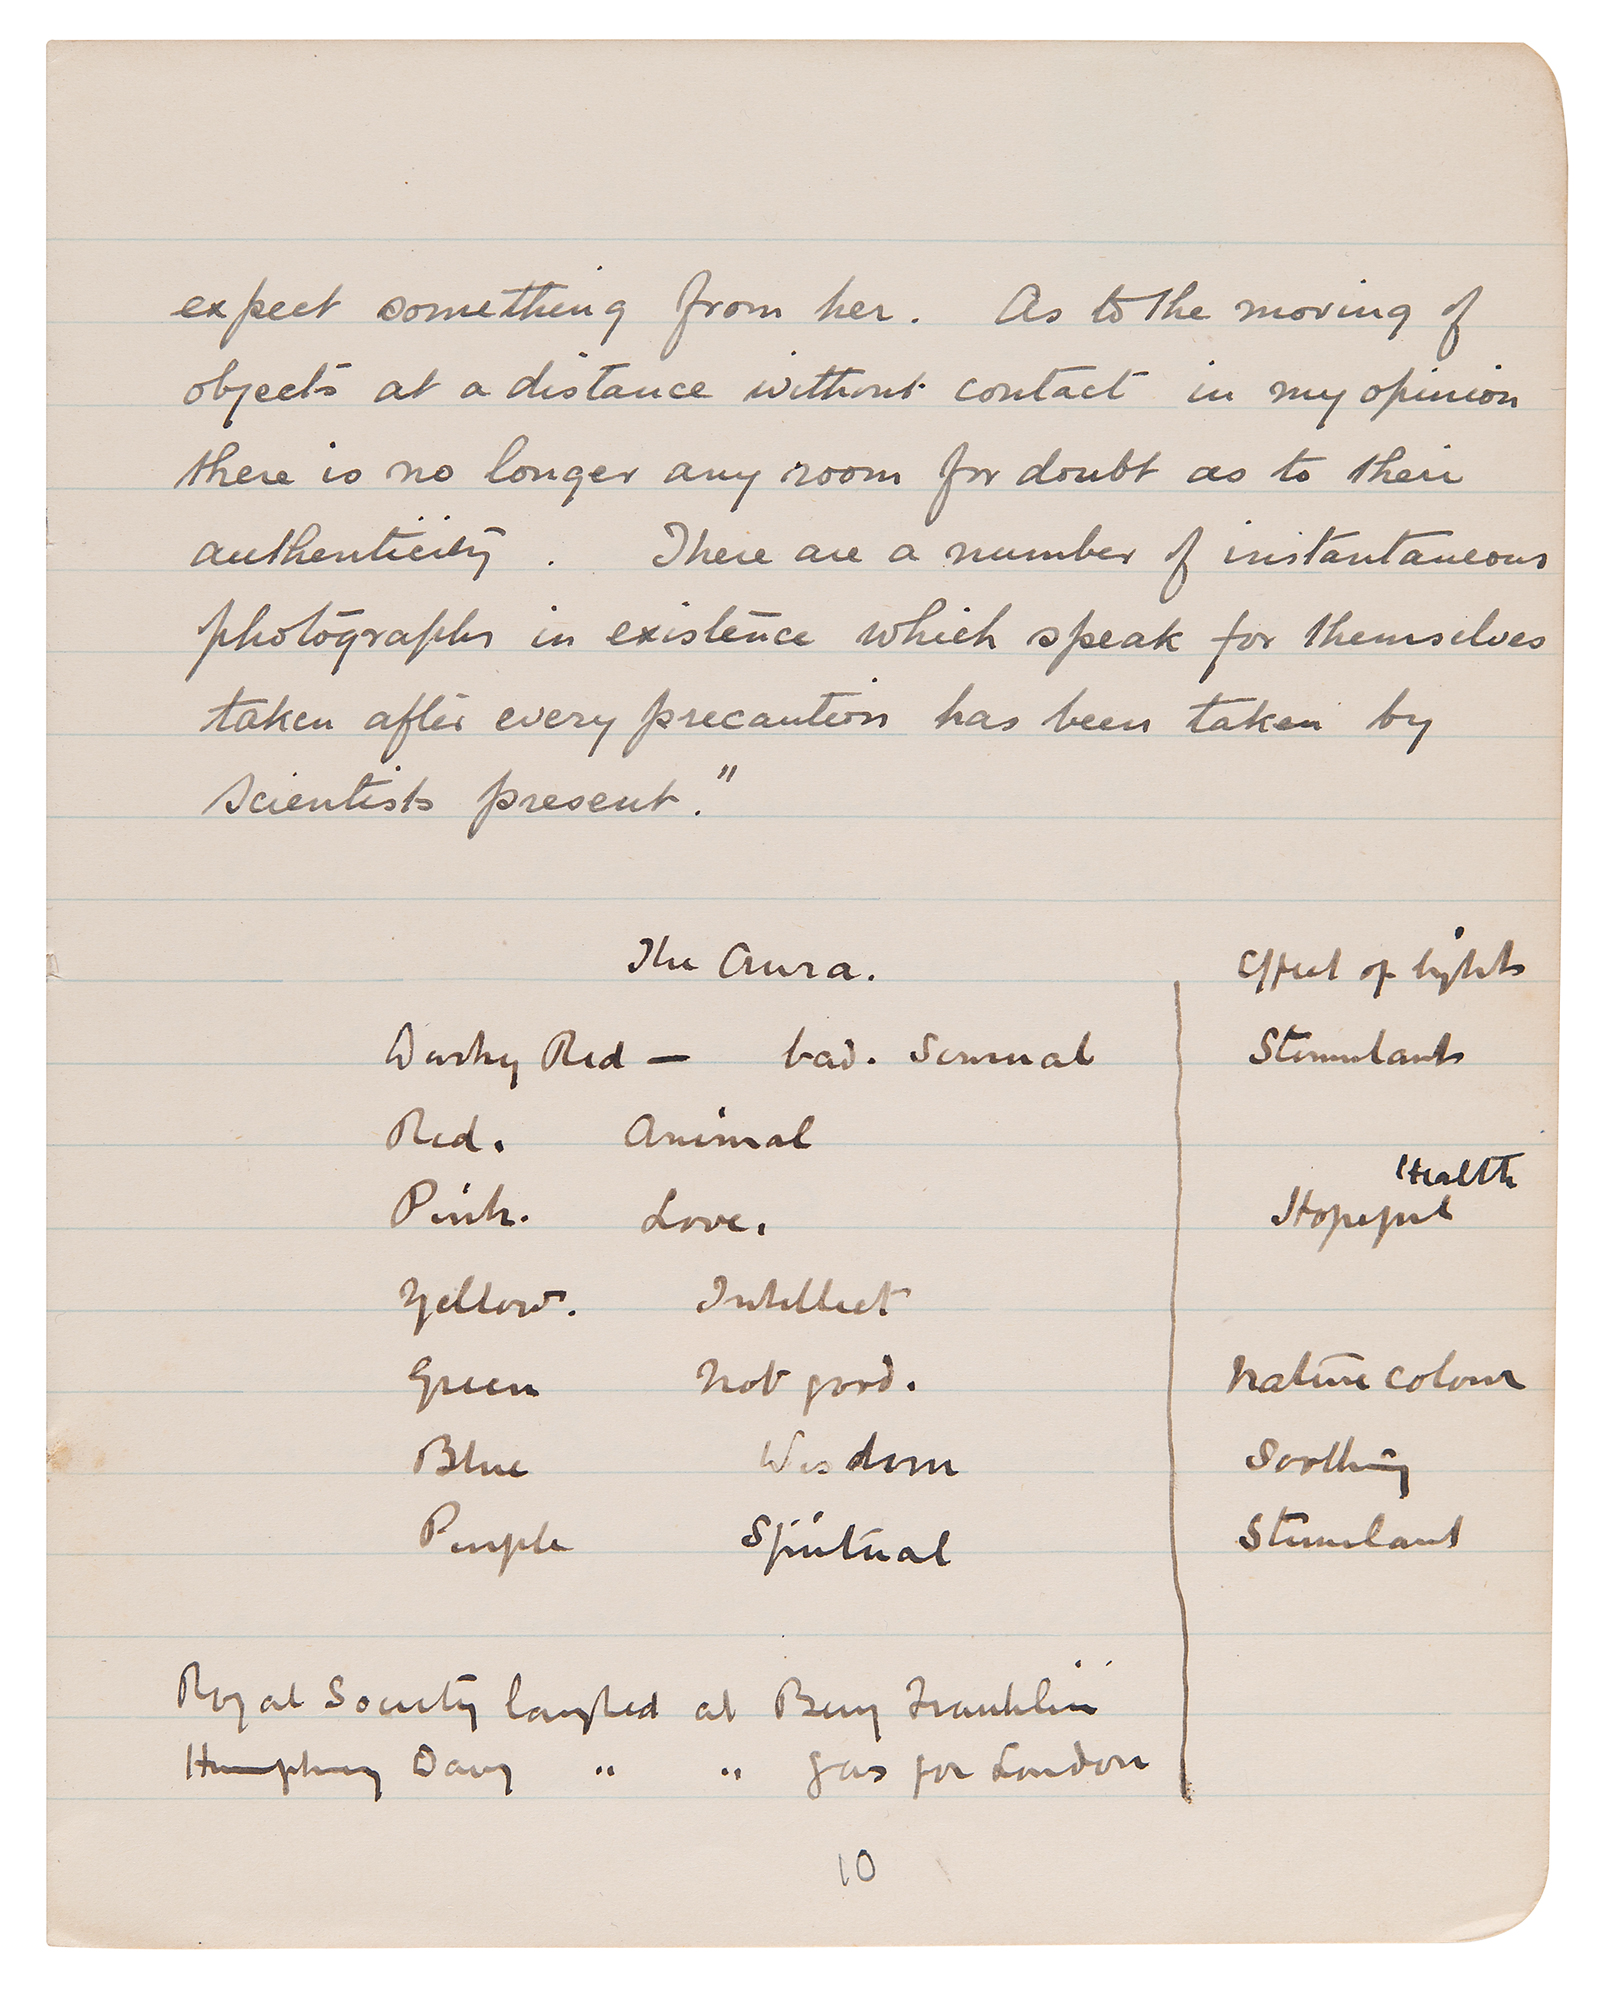 expect something from her. As to the moving of
objects at a distance without contact in my opinion
there is no longer any room for doubt as to their
authenticity. There are a number of instantaneous
photographs in existence which speak for themselves
taken after every precaution has been taken by
scientists present."
The Aura. Effect of lights
Dusky Red — bad. Sensual Stimulants
Red. Animal
Health
Pink. Love. Hopeful
Yellow. Intellect
Green Not good. Nature colour
Blue Wisdom Soothing
Purple Spiritual Stimulant
Royal Society laughed at Benj Franklin
Humphrey Davy " " gas for London
10